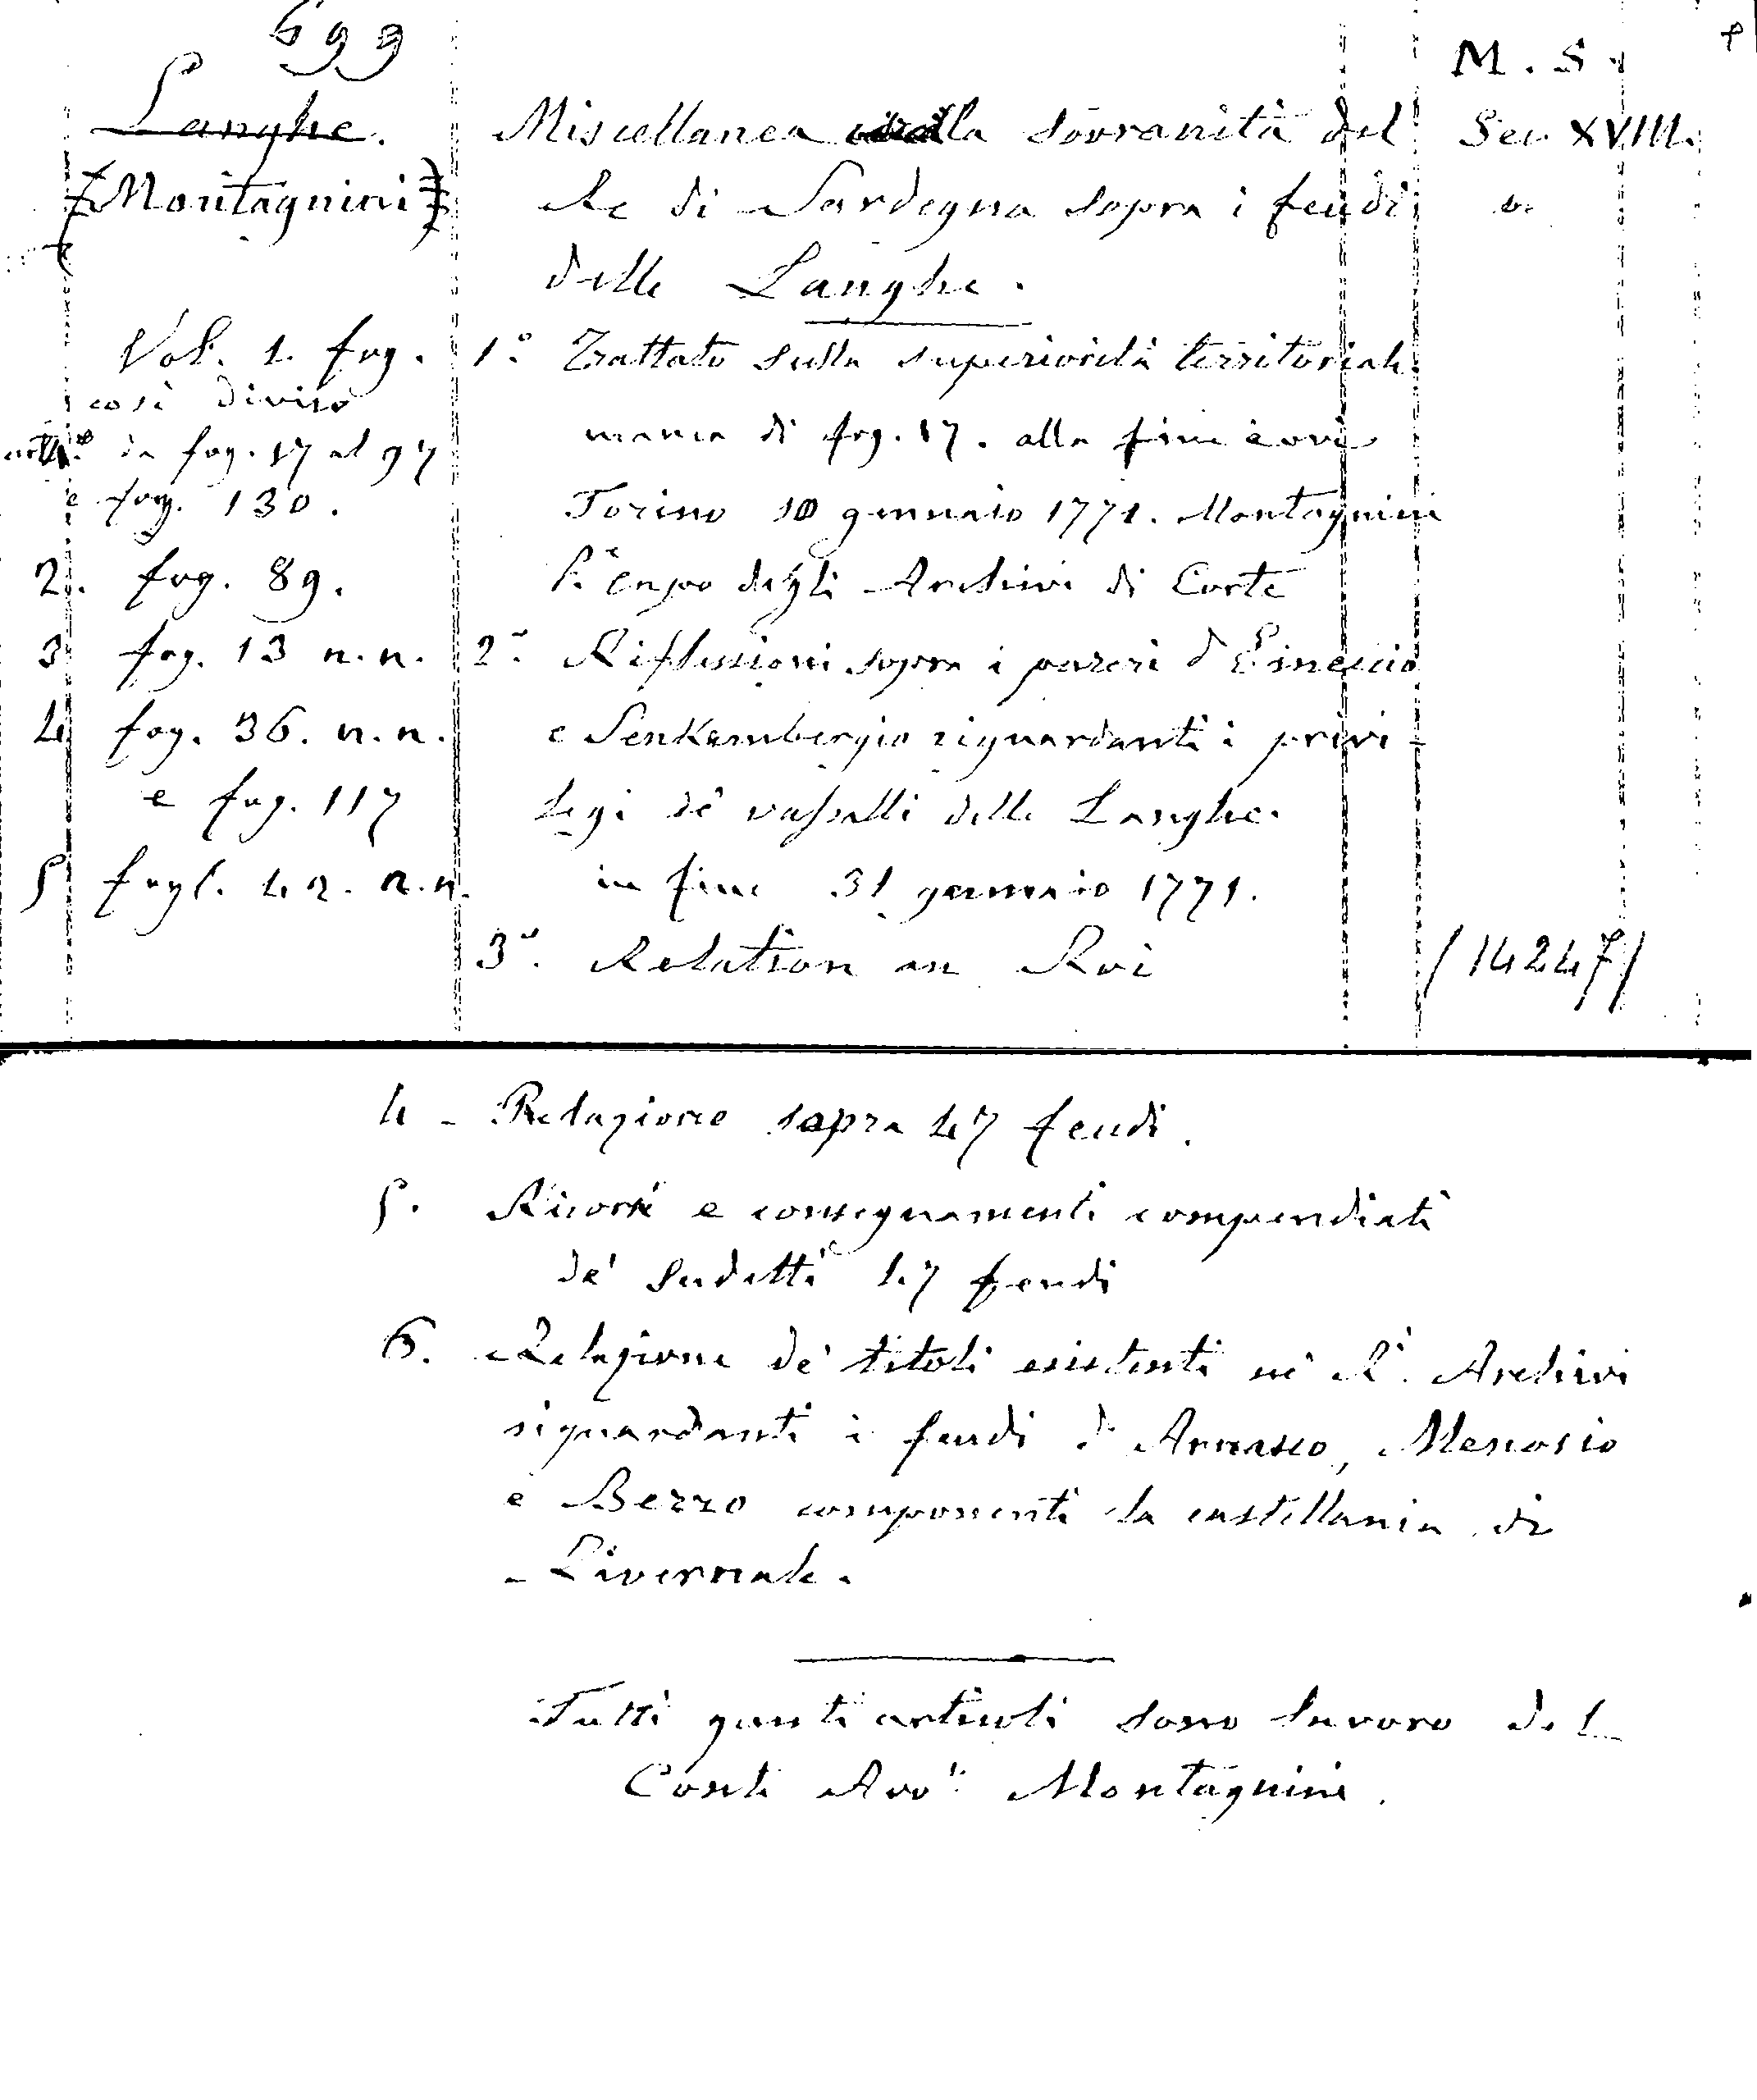 699
M. S.
Langhe. Miscellanea sulla sovranità del Sec. XVIII.
(Montagnini) Re di Sardegna sopra i feudi
delle Langhe.
Vol. 1. fog. 1.° Trattato sulla superiorità territoriale
così diviso
da fog. 17 al 97 manca di fog. 17. alla fine
e fog. 130. Torino 10 gennaio 1771. Montagnini
2. fog. 89. degli Archivi di Corte
3 fog. 13 n.n. 2.° Riflessioni sopra i pareri d'Eineccio
4 fog. 36. n.n. e Senkembergio riguardanti i privi-
e fog. 117 legi de' vassalli delle Langhe.
5 fogl. 42. n.n. in fine 31 gennaio 1771.
3.° Relation au Roi (14247)
4 - Relazione sopra 47 feudi.
5. Ricorsi e consegnamenti compendiati
de' sudetti 47 feudi
6. Relazione de' titoli esistenti ne' R.i Archivi
riguardanti i feudi d'Arnasco, Menosio
e Bezzo componenti la castellania di
Rivernale.
Tutti questi articoli sono lavoro del
Conte Avv.° Montagnini.